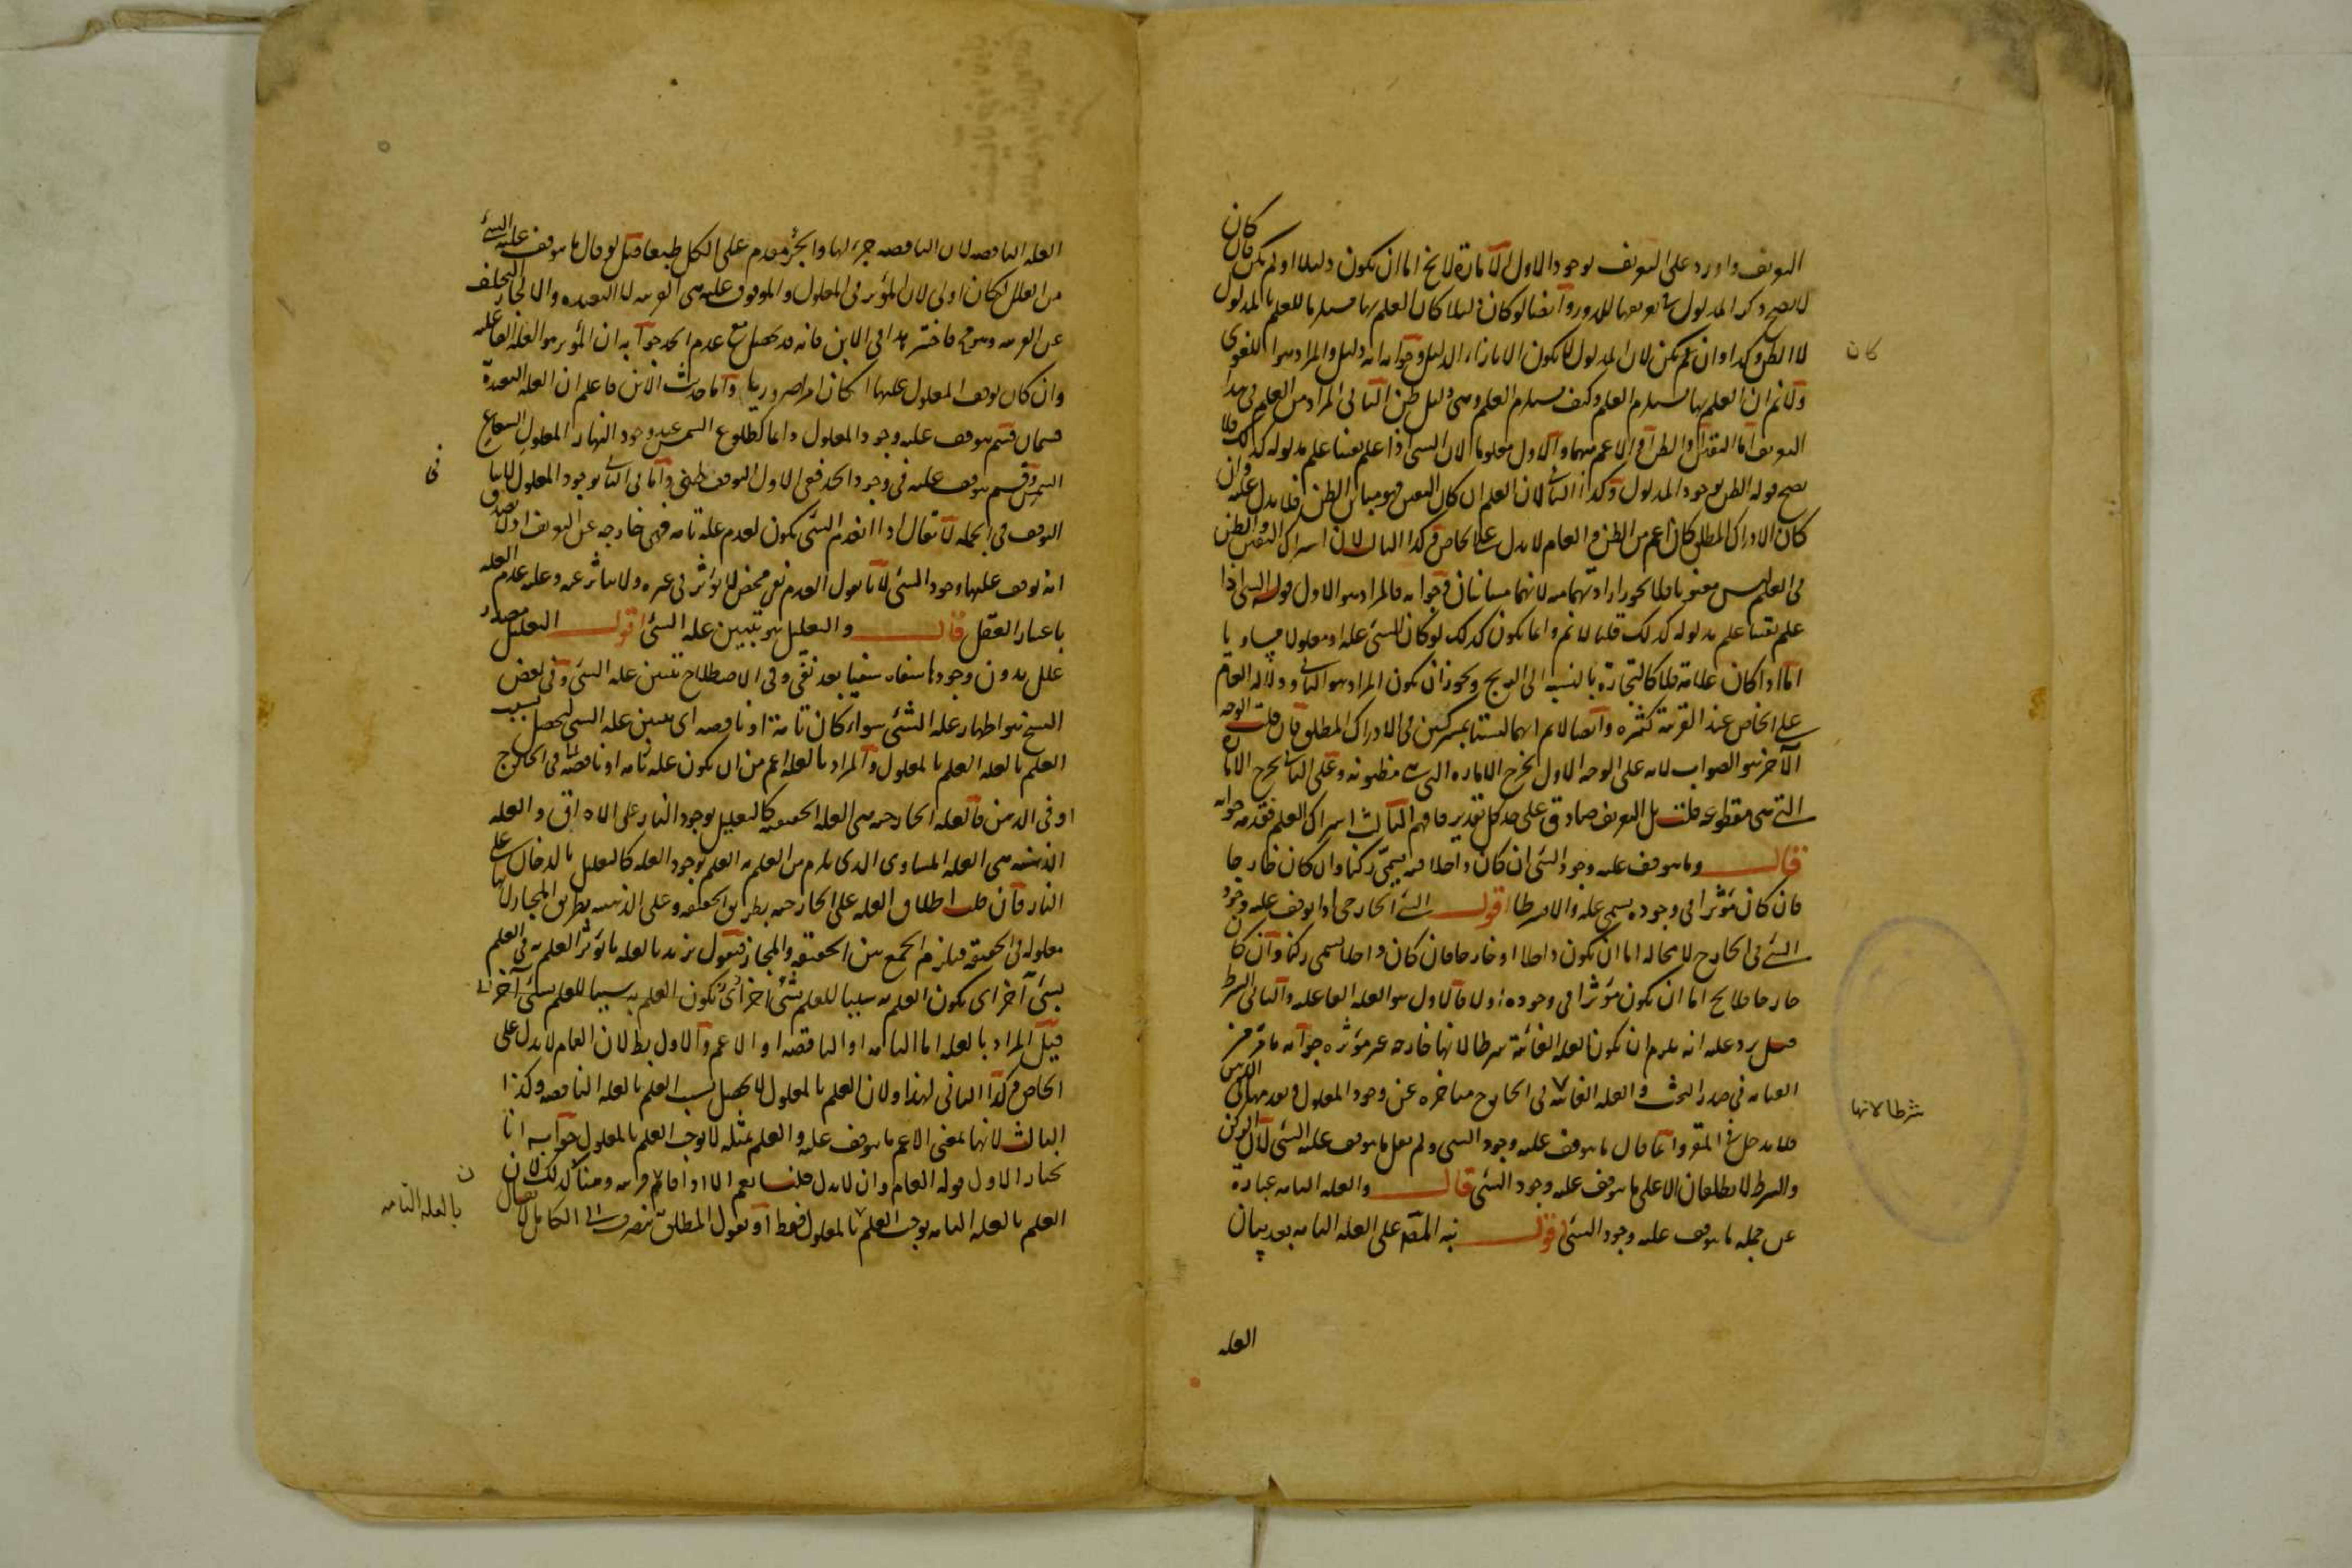 كان
التعريف واورد على التعريف لوجود الاول الامارة لا يخ اما ان تكون دليلا او لم تكن فان
لا يصح ذكر المدلول في تعريفها للدور وايضا لو كان دليلا كان العلم بها مستلزما للعلم بالمدلول
لا الظن وكذا وان لم تكن لان المدلول لا يكون الا بازاء الدليل وجوابه انه دليل والمراد هو اللغوى
ولا نم ان العلم بها يستلزم العلم وكيف يستلزم العلم وهى دليل ظن الثانى المراد من العلم فى هذا
التعريف اما اليقين او الظن او الاعم منهما والاول معلوما لان الشئ اذا علم يقينا علم مدلوله كذلك فلا
يصح قوله الظن بوجود المدلول وكذا الثانى لان العلم ان كان اليقين فهو مباين الظن فلا يدل عليه وان
كان الادراك المطلق كان اعم من الظن والعام لا يدل على الخاص وكذا الثالث لان اشراك اليقين والظن
فى العلم ليس معنويا فلا يجوز ارادتهما منه لانهما متباينان وجوابه فالمراد هو الاول قوله الشئ اذا
علم يقينا علم مدلوله كذلك قلنا لا نم وانما يكون كذلك لو كان للشئ علة او معلولا مساويا
اما اذا كان علامة فلا كالتجارة بالنسبة الى الربح ويجوز ان يكون المراد هو الثانى ودلالة العام
على الخاص عند القرينة كثيرة وايضا لا نم انهما ليستا بمشتركين فى الادراك المطلق فان قلت الوجه
الآخر هو الصواب لانه على الوجه الاول يخرج الامارة التى هى مظنونة وعلى الثانى يخرج الامارة
التى هى مقطوعة قلت بل التعريف صادق على كل تقدير فافهم الثالث اشراك العلم فقد مر جوابه
قال وما يتوقف عليه وجود الشئ ان كان داخلا فيه يسمى ركنا وان كان خارجا
فان كان مؤثرا فى وجوده يسمى علة والا شرطا اقول الشئ الخارجى اذا توقف عليه وجود
الشئ فى الخارج لا محالة اما ان يكون داخلا او خارجا فان كان داخلا يسمى ركنا وان كان
خارجا فلا يخ اما ان يكون مؤثرا فى وجوده اولا فالاول هو العلة الفاعلة والثانى الشرط
قيل يرد عليه انه يلزم ان تكون العلة الغائية شرطا لانها خارجة غير مؤثرة جوابه ما مر من
العناية فى صدر البحث والعلة الغائية فى الخارج متأخرة عن وجود المعلول وبعد مهيته فى الذهن
فلا يدخل فى المقر وانما قال ما يتوقف عليه وجود الشئ ولم يقل ما يتوقف عليه الشئ لان الركن
والشرط لا يطلقان الا على ما يتوقف عليه وجود الشئ قال والعلة التامة عبارة
عن جملة ما يتوقف عليه وجود الشئ اقول نبه المص على العلة التامة بعد بيان
العله
كان
شرطا لانها
العلة الناقصة لان الناقصة جزء لها والجزء مقدم على الكل طبعا قيل لو قال ما يتوقف عليه الشئ
من العلل لكان اولى لان المؤثر فى المعلول والموقوف عليه هى القريبة لا البعيدة والا لجاز التخلف
عن القريبة وهو مح فاختر هذا فى الابن فانه قد يحصل مع عدم الجد جوابه ان المؤثر هو العلة الفاعلة
وان كان توقف المعلول عليها كان امرا ضروريا واما حديث الابن فاعلم ان العلة البعيدة
قسمان قسم يتوقف عليه وجود المعلول دائما كطلوع الشمس عند وجود النهار المعلول لشعاع
الشمس وقسم يتوقف عليه فى وجود الجد ففى الاول التوقف وفى الثانى بوجود المعلول
التوقف فى الجملة لا يقال اذا انعدم الشئ يكون لعدم علة تامة فهى خارجة عن التعريف اذ لا يصدق
انه توقف عليها وجود الشئ لانا نقول العدم نفى محض لا يؤثر فى غيره ولا يتاثر عنه وعلة عدم العلة
باعتبار العقل قال والتعليل هو تبيين علة الشئ اقول التعليل مصدر
علل بدون وجود سقاه سقيا بعد نقى وفى الاصطلاح تبيين علة الشئ وفى بعض
النسخ هو اظهار علة الشئ سواء كان تامة او ناقصة اى تبيين علة الشئ ليحصل بسبب
العلم بالعلة العلم بالمعلول والمراد بالعلة اعم من ان تكون علة تامة او ناقصة فى الخارج
او فى الذهن فالعلة الخارجية هى العلة الحقيقية كالتعليل بوجود النار على الاحراق والعلة
الذهنية هى العلة المساوى الذى يلزم من العلم به العلم بوجود العلة كالتعليل بالدخان على
النار فان قلت اطلاق العلة على الخارجية بطريق الحقيقة وعلى الذهنية بطريق المجاز لانها
معلولة فى الحقيقة فيلزم الجمع بين الحقيقة والمجاز فنقول نريد بالعلة ما يؤثر العلم به فى العلم
بشئ آخر اى يكون العلم به سببا للعلم بشئ آخر اى يكون العلم به سببا للعلم بشئ آخر
قيل المراد بالعلة اما التامة او الناقصة او الاعم والاول بط لان العام لا يدل على
الخاص وكذا الثانى لهذا ولان العلم بالمعلول لا يحصل بسبب العلم بالعلة الناقصة وكذا
الثالث لانها بمعنى الاعم ما يتوقف عليه والعلم بمثله لا يوجب العلم بالمعلول جوابه انا
نختار الاول قوله العام وان لا يدل قلنا نعم الا اذا قام قرينة وهنا كذلك لان
العلم بالعلة التامة يوجب العلم بالمعلول فقط او نقول المطلق ينصرف الى الكامل لا يقال
فى
بالعلة التامة